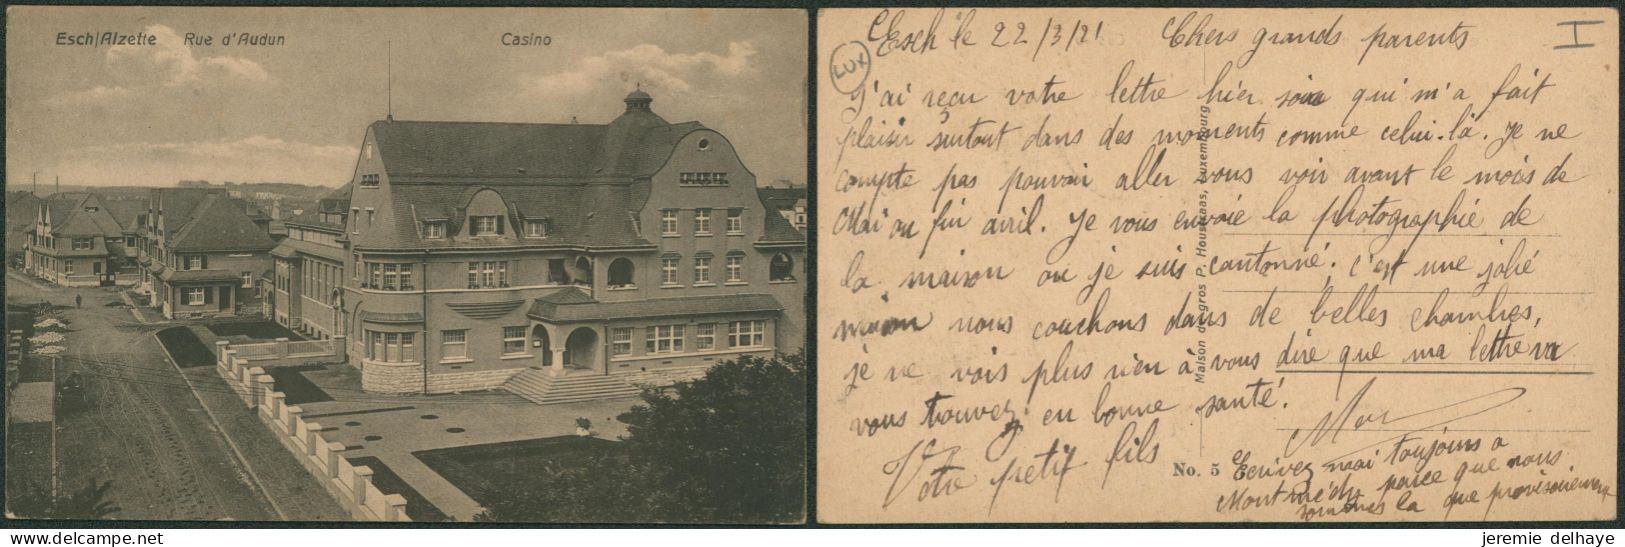 Esch/Alzette Rue d'Audun Casino
LUX
I
Esch le 22/3/21 Chers grands parents
J'ai reçu votre lettre hier soir qui m'a fait
plaisir surtout dans des moments comme celui-là. Je ne
compte pas pouvoir aller vous voir avant le mois de
Mai ou fin avril. Je vous envoie la photographie de
la maison ou je suis cantonné; c'est une jolie
maison nous couchons dans de belles chambres,
je ne vois plus rien à vous dire que ma lettre va
vous trouvez en bonne santé.
Votre petit fils
Ecrivez moi toujours a
Montmédy parce que nous
sommes la que provisoirement
No. 5
Maison de gros P. Houstraas, Luxembourg
jeremie delhaye